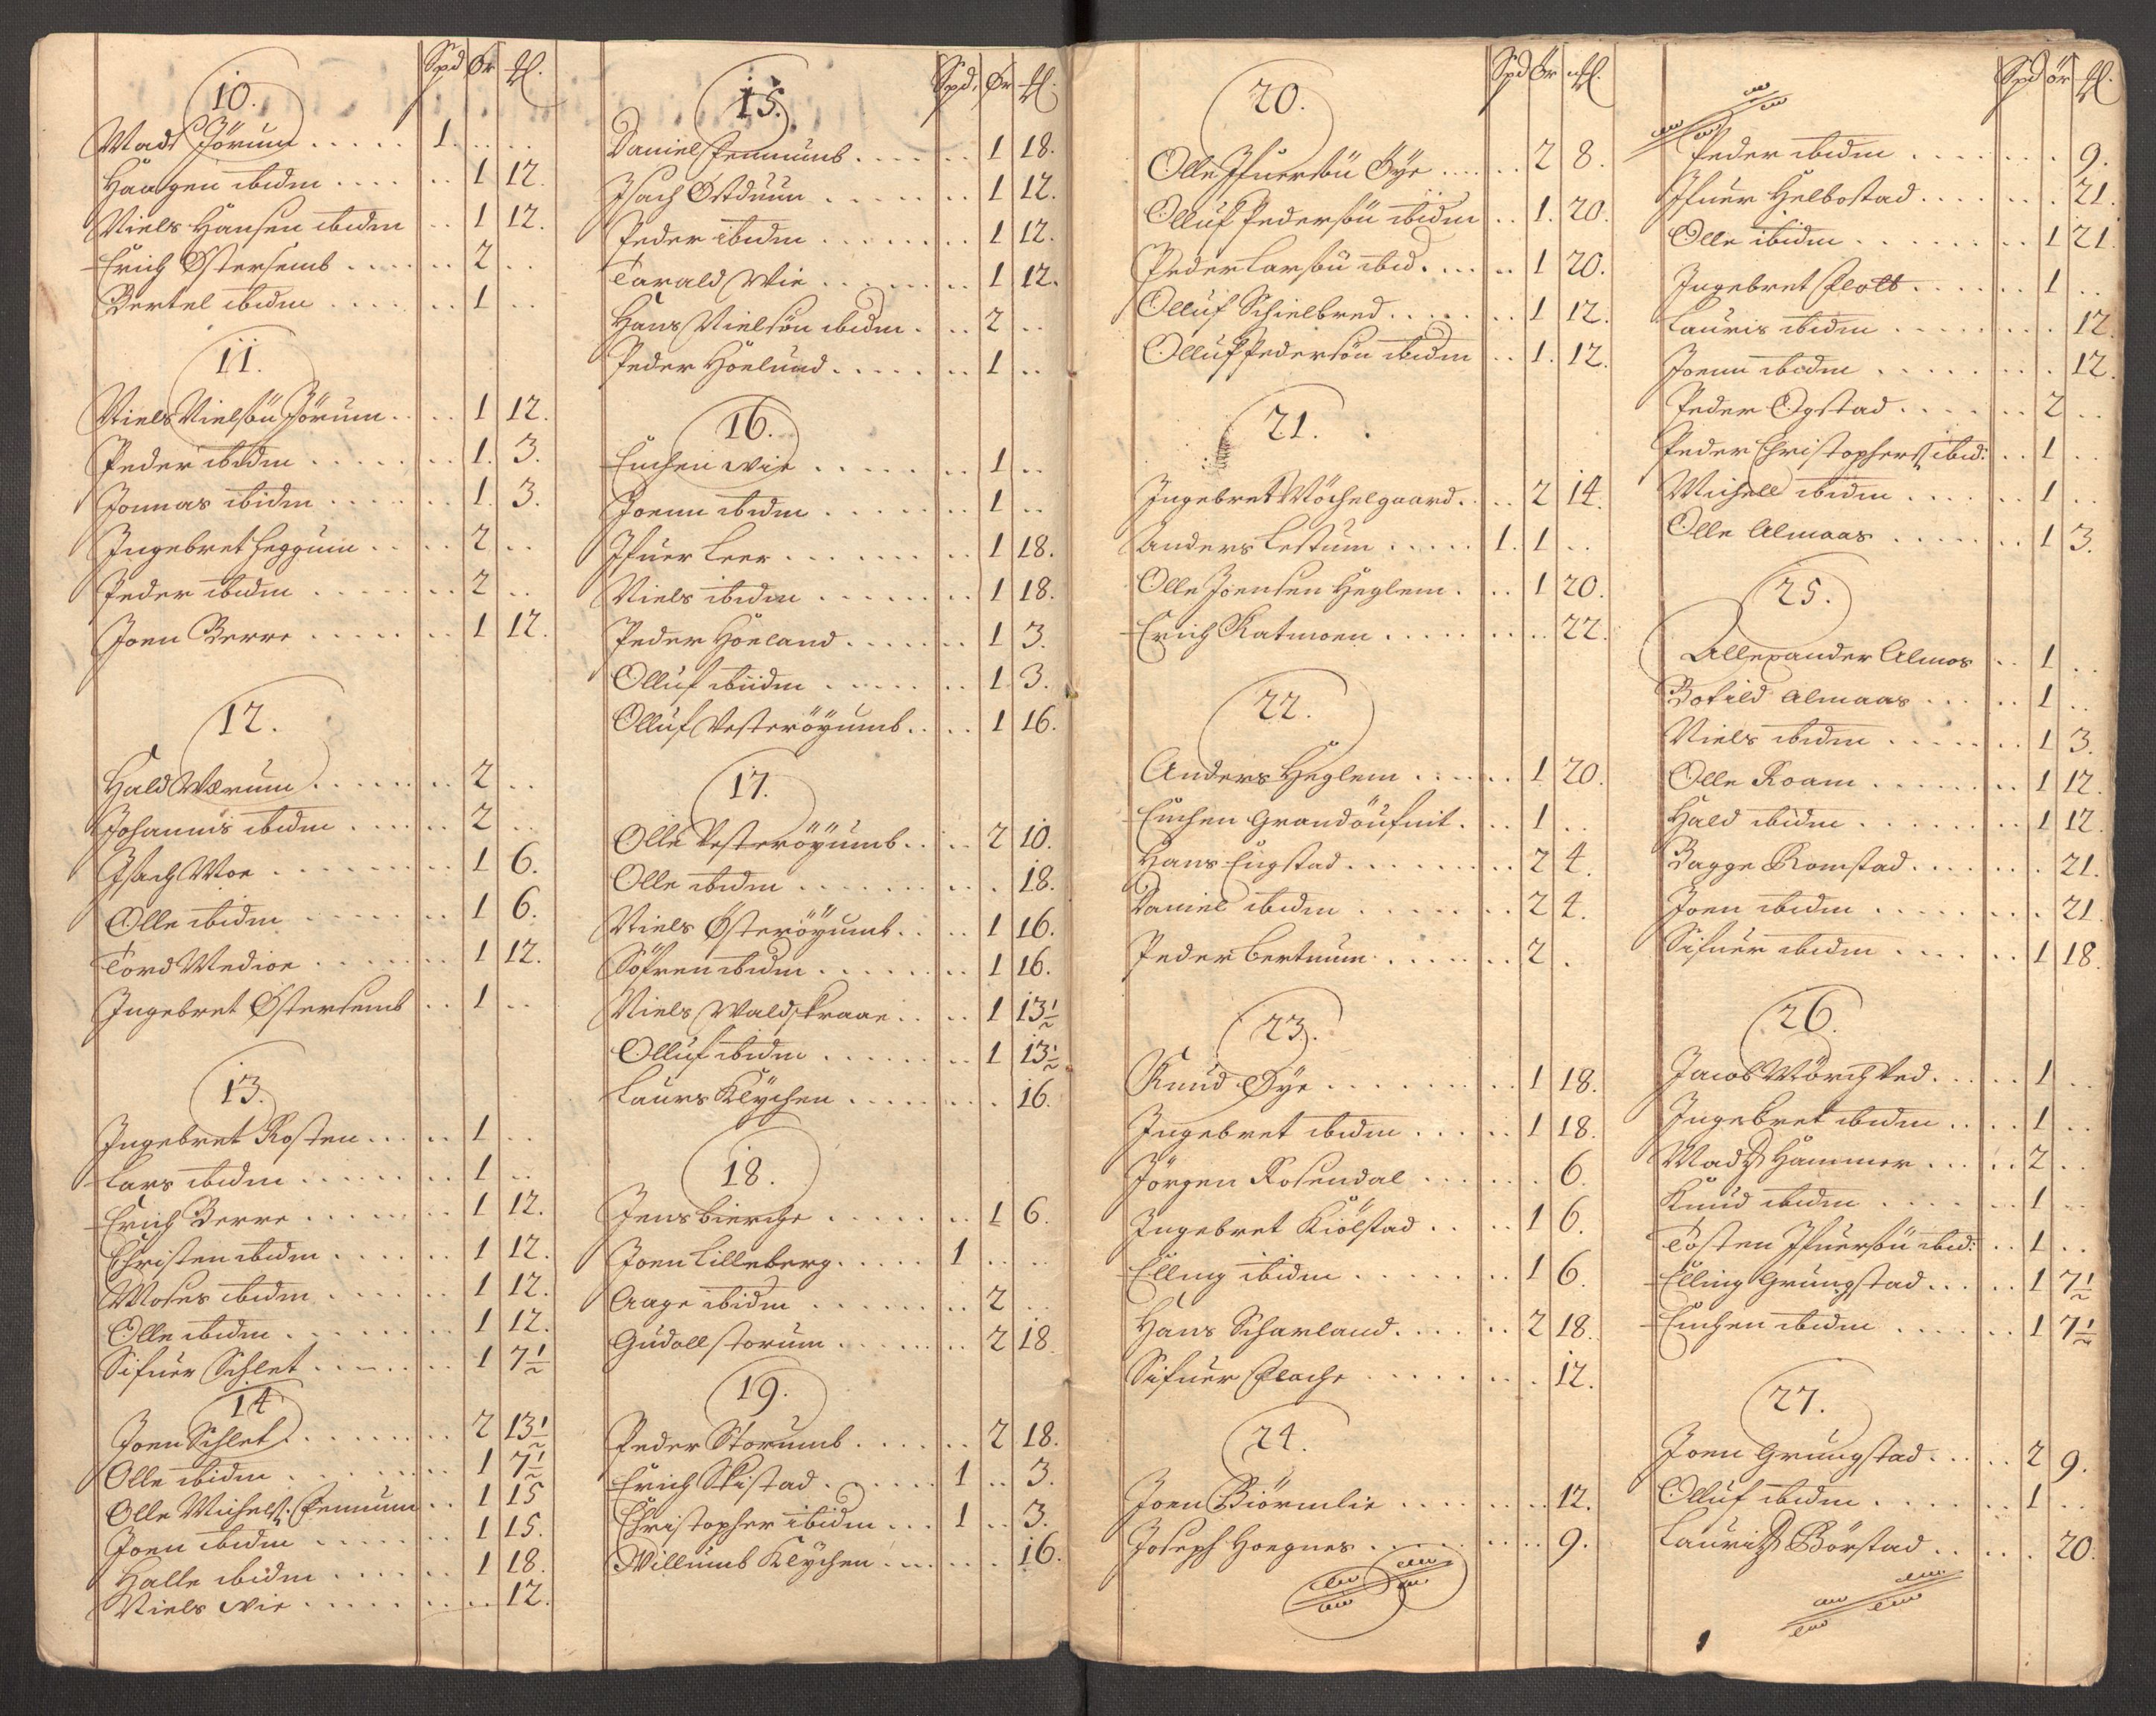 Spd Ør ₰.
10.
Mads Jörum . . . . . 1. . . . .
Haagen ibidm . . . . . . 1 12.
Niels Hansen ibidm . . 1 12.
Erich Østersemb . . . . . . 2 . .
Bertel ibidm . . . . . . . 1 . .
11.
Niels Nielsön Jörum . . . . 1 12.
Peder ibidm . . . . . . . 1. 3.
Jonnas ibidm . . . . . . 1. 3.
Ingebret Heggum . . . . . 2 . .
Peder ibidm . . . . . . . 2 . .
Joen Berre . . . . . . . 1 12.
12.
Hald Werum . . . . . . . 2 . .
Johannis ibidm . . . . . . 2 . .
Isach Moe . . . . . . . . 1 6.
Olle ibidm . . . . . . . 1 6.
Tord Medioe . . . . . . . 1 12.
Ingebret Østersemb . . 1 . .
13.
Ingebret Rosten . . . . . 1 . .
Lars ibidm . . . . . . . 1 . .
Erich Berre . . . . . . . 1 12.
Christen ibidm . . . . . . 1 12.
Moses ibidm . . . . . . . 1 12.
Olle ibidm . . . . . . . . 1 12.
Sifuer Schlet . . . . . . . 1 7½
14
Joen Schlet . . . . . . . . 2 13½
Olle ibidm . . . . . . . . 1 7½
Olle Michels: Femum . . 1 15
Joen ibidm . . . . . . . 1 15.
Halle ibidm . . . . . . . 1 18.
Niels Vie . . . . . . . . . 12.
Spd. Ør ₰.
15.
Daniel Femumb . . . . . . 1 18.
Isach Östduun . . . . . . . 1 12.
Peder ibidm . . . . . . . . 1 12.
Tarald Wie . . . . . . . . 1 12.
Hans Nielsön ibidm . . . 2 . .
Peder Höelund . . . . . . . 1 . .
16.
Euchen Vie . . . . . . . 1 . .
Joenn ibidm . . . . . . . 1 . .
Ifuer Leer . . . . . . . . 1 18.
Niels ibidm . . . . . . . . 1 18.
Peder Höeland . . . . . . . 1 3.
Olluf ibiidm . . . . . . . 1 3.
Olluf Vesteröyumb . . . . 1 16.
17.
Olle Vesteröyumb . . . . 2 10.
Olle ibidm . . . . . . . . . 18.
Niels Österöyumb . . . . 1 16.
Söfren ibidm . . . . . . . 1 16.
Niels Waldskraae . . . . 1 13½
Olluf ibidm . . . . . . . . 1 13½
Laurs Klychen . . . . . . . 16.
18.
Jens Bierche . . . . . . . 1 6.
Joen Lilleberg . . . . . 1 . . . .
Aage ibidm . . . . . . . . 2 . .
Gudoll Storum . . . . . . . 2 18.
19.
Peder Storumb . . . . . . . 2 18.
Erich Skistad . . . . . . 1 . . 3.
Christopher ibidm . . . 1 . . 3.
Willumb Klychen . . . . . . 16.
Spd Ør ₰.
20.
Olle Ifuersön Öye . . . . . . 2 8.
Olluf Pedersön ibidm . . 1. 20.
Peder Larsön ibid. . . . . . 1 20.
Olluf Schielbred . . . . . . . 1 12.
Olluf Pedersön ibidm . . 1. 12.
21.
Ingebret Möchelgaard . . . 2 14.
Anders Lestum . . . . . 1. 1 . .
Olle Joensen Heglem . . . 1 20.
Erich Katmoen . . . . . . . . 22.
22.
Anders Heglem . . . . . . 1 20.
Euchen Grandöufnit . . . 1 . .
Hans Eugstad . . . . . . . . 2 4.
Daniel ibidm . . . . . . . 2 4.
Peder Bertnum . . . . . . . 2 .
23.
Knud Öye . . . . . . . . . 1 18.
Ingebret ibidm . . . . . . 1 18.
Jörgen Rosendal . . . . . . . 6.
Ingebret Kiölstad . . . . 1 6.
Elling ibidm . . . . . . . 1 6.
Hans Scharland . . . . . . 2 18.
Sifuer Flache . . . . . . . . 12.
24.
Joen Biörnlie . . . . . . . . 12.
Joseph Hoegnes . . . . . . . . 9.
Spd ør ₰.
Peder ibidm . . . . . . . . 9.
Ifuer Helbostad . . . . . . . 21.
Olle ibidm . . . . . . . . 1 21
Ingebret Flott . . . . . . . 1 . .
Lauris ibidm . . . . . . . . 12.
Joenn ibidm . . . . . . . . 12.
Peder Ogstad . . . . . . . 2 . .
Peder Christophers: ibid: . . 1 . .
Michell ibidm . . . . . . . 1 . .
Olle Almaas . . . . . . . 1 3.
25.
Allexander Almos . . 1 . .
Botild Almaas . . . . . 1 . .
Niels ibidm . . . . . . . 1 3.
Olle Roam . . . . . . . . 1 12.
Hald ibidm . . . . . . . . 1 12.
Bagge Romstad . . . . . . . 21.
Joen ibidm . . . . . . . . 21.
Sifuer ibidm . . . . . . 1 18.
26.
Jacob Mörchved . . . . . 1 . .
Ingebret ibidm . . . . 1 . .
Mads Hammer . . . . . 2 . .
Knud ibidm . . . . . . . 1 . .
Tosten Ifuersön ibid: . . 1 . .
Elling Grungstad . . . . . 1 7½
Euchen ibidm . . . . . . . 1 7½
27.
Joen Grungstad . . . . . 2 9.
Olluf ibidm . . . . . . . 1 . .
Lauritz Börstad . . . . . . 20.